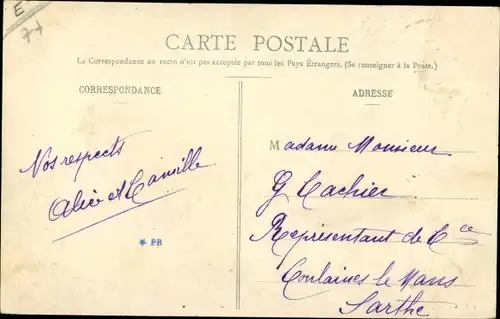 E
77
CARTE POSTALE
La Correspondance au recto n'est pas acceptée par tous les Pays Étrangers. (Se renseigner à la Poste.)
CORRESPONDANCE
Nos respects
Alice et Camille
★ PB
ADRESSE
Madame Monsieur
G Cachier
Représentant de Cce
Coulaines le Mans
Sarthe